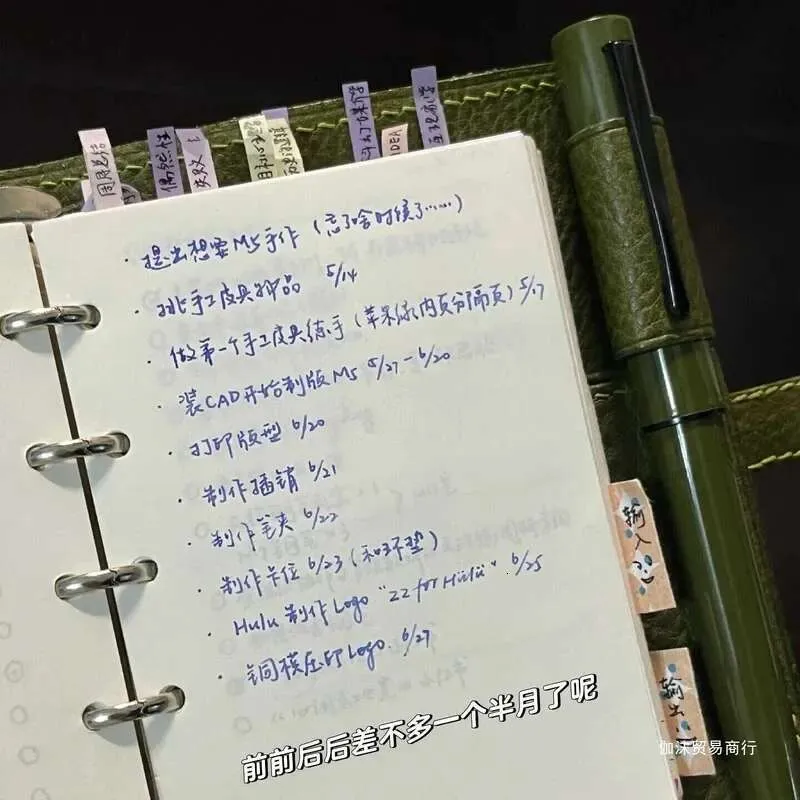 周月总结
偶然性
失败
IDEA
·提出想要M5手作（忘了啥时候了……）
·挑手工皮具样品 5/14
·做第一个手工皮具练手（苹果绿内页分隔页）5/17
·装CAD开始制版M5 5/27-6/20
·打印版型 6/20
·制作插销 6/21
·制作笔夹 6/22
·制作卡位 6/23（和环垫）
·Hulu制作Logo "ZZ for Hulu" 6/25
·铜模压印Logo. 6/27
输入
输出
前前后后差不多一个半月了呢
伽沫贸易商行